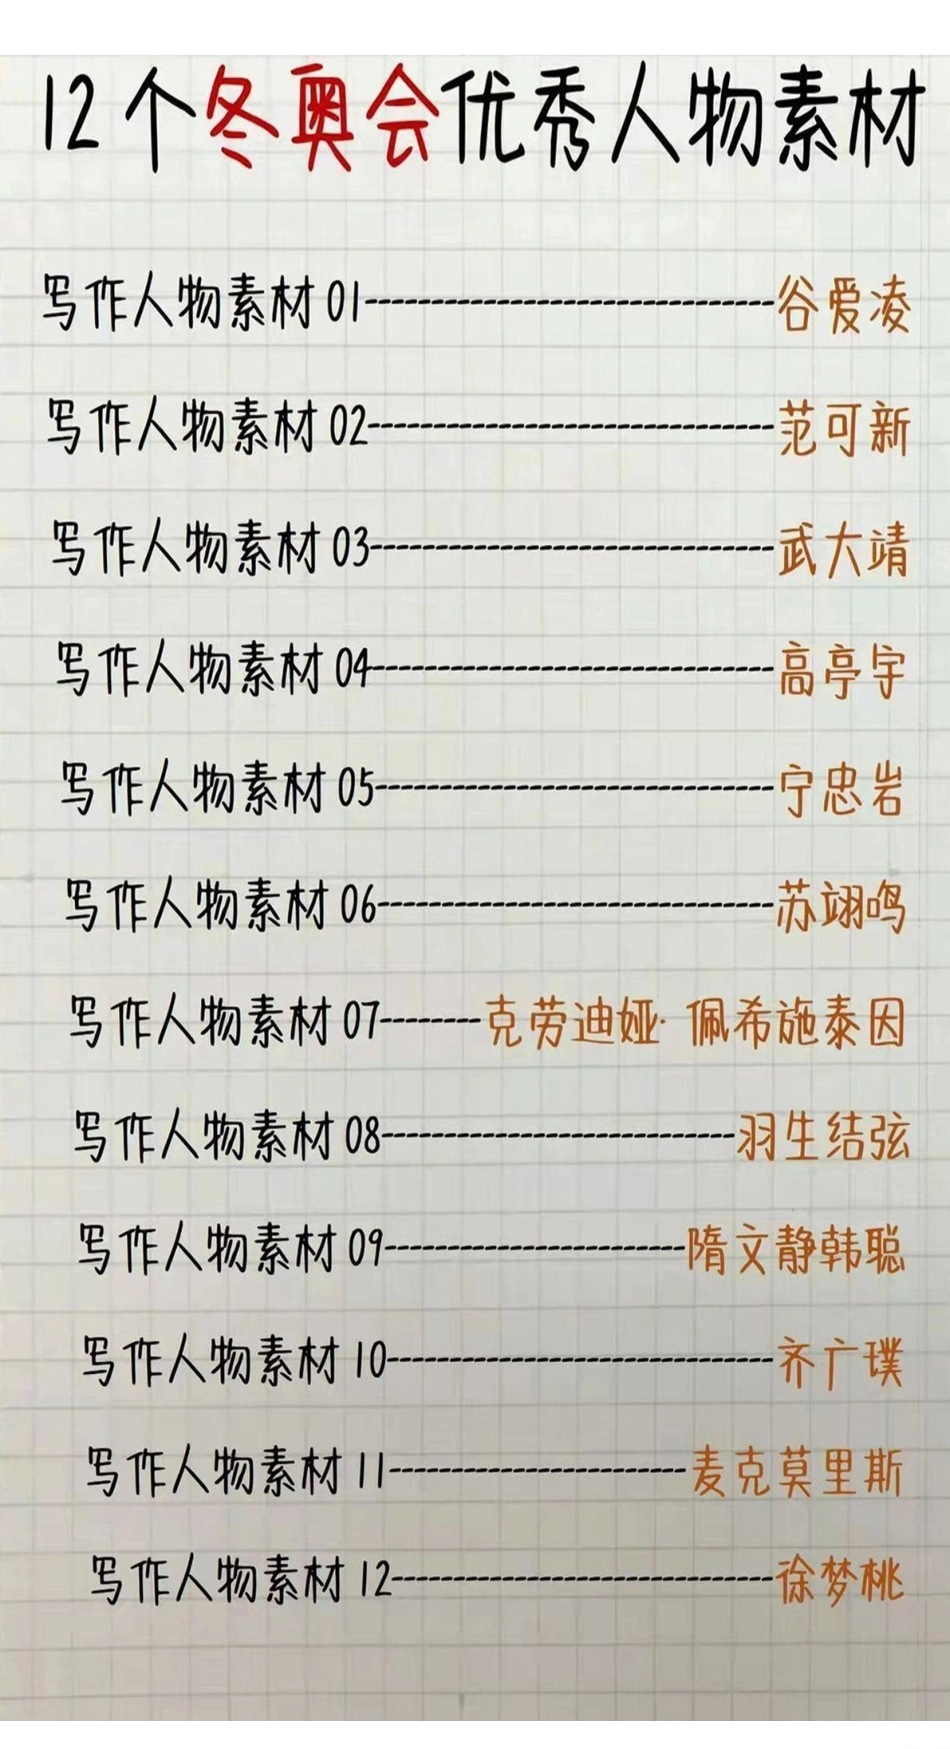 12个冬奥会优秀人物素材
写作人物素材01-------------------------谷爱凌
写作人物素材02-------------------------范可新
写作人物素材03-------------------------武大靖
写作人物素材04-------------------------高亭宇
写作人物素材05-------------------------宁忠岩
写作人物素材06-------------------------苏翊鸣
写作人物素材07-------克劳迪娅·佩希施泰因
写作人物素材08----------------------羽生结弦
写作人物素材09-------------------隋文静韩聪
写作人物素材10-------------------------齐广璞
写作人物素材11-------------------麦克莫里斯
写作人物素材12-------------------------徐梦桃